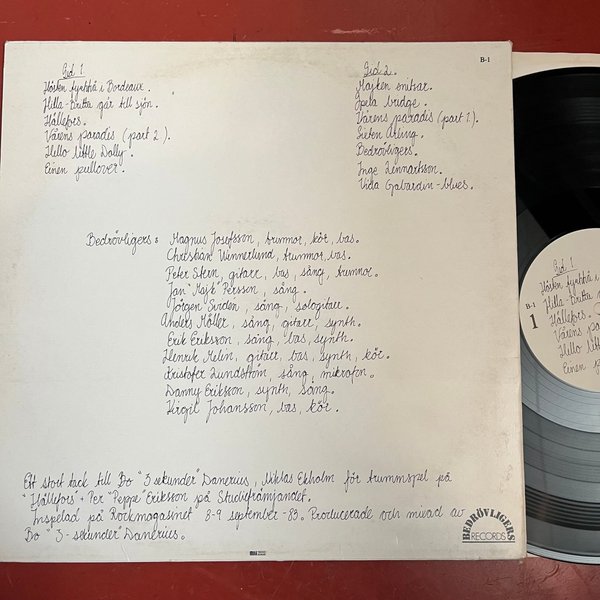 Sid 1
Hösten fyrtitvå i Bordeaux.
Hilla-Britta går till sjön.
Hällefors.
Vårens paradis (part 2).
Hello little Dolly.
Einen pullover.
Sid 2.
Majken snibar.
Spela bridge.
Vårens paradis (part 1).
Sixten Arling.
Bedrövligers.
Inge Lennartsson.
Vida Gabardin-blues.
B-1
Bedrövligers: Magnus Josefsson, trummor, kör, bas.
Christian Winnerlund, trummor, bas.
Peter Stern, gitarr, bas, sång, trummor.
Jan "Majk" Persson, sång.
Jörgen Sirden, sång, sologitarr.
Anders Möller, sång, gitarr, synth.
Erik Eriksson, sång, bas, synth.
Henrik Melin, gitarr, bas, synth, kör.
Kristofer Lundström, sång, mikrofon.
Danny Eriksson, synth, sång.
Virgil Johansson, bas, kör.
Ett stort tack till Bo "3 sekunder" Danerius, Niklas Ekholm för trummspel på
"Hällefors" + Per "Peppe" Eriksson på Studiefrämjandet.
Inspelad på Rockmagasinet 8-9 september-83. Producerade och mixad av
Bo "3-sekunder" Danerius.
BEDRÖVLIGERS
RECORDS
Sid 1
Hösten fyrtitvå i
Hilla-Britta gå
Hällefors.
Vårens parad
Hello little
Einen p
B-1
1